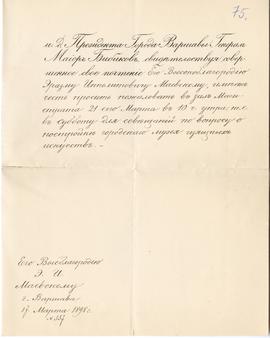 75.
и. д. Президента Города Варшавы, Генерал
Маіоръ Бибиковъ, свидѣтельствуя совер-
шенное свое почтеніе Его Высокоблагородію
Эразму Ипполитовичу Маевскому, имѣетъ
честь просить пожаловать въ залъ Маги-
страта 21 его Марта въ 10 ч. утра, т. е.
въ субботу для совѣщаній по вопросу о
постройкѣ городскаго музея изящныхъ
искусствъ. —
Его Высокоблагородію
Э. И.
Маевскому
г. Варшава
17 Марта 1898 г.
№ 557